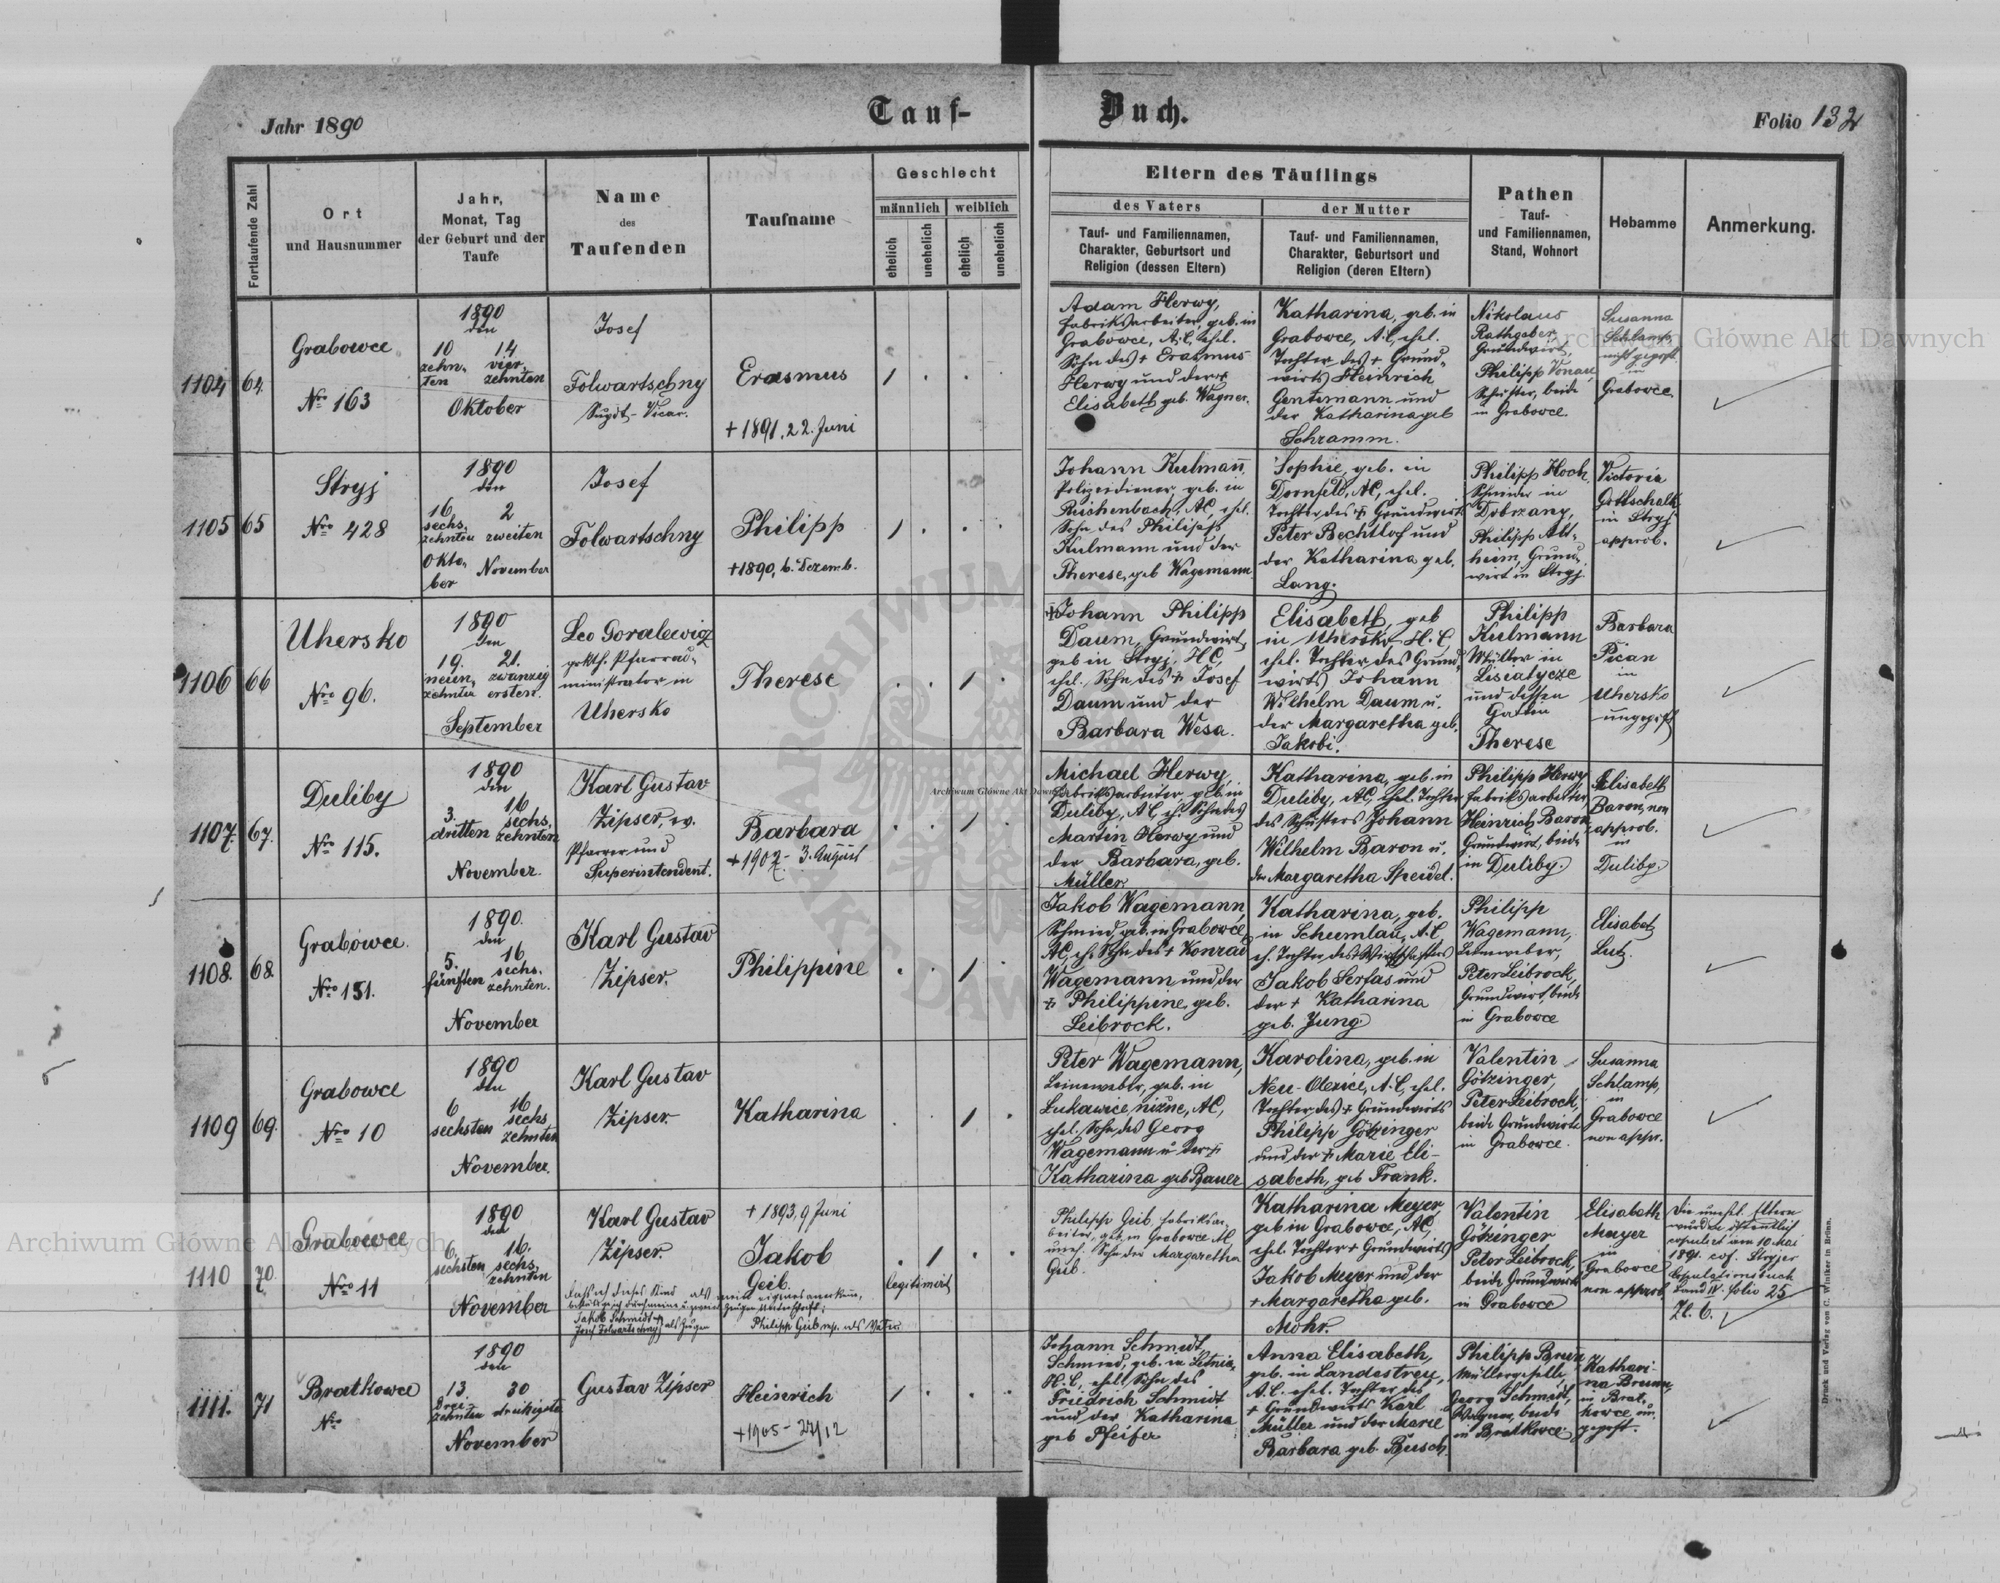 Jahr 1890
Tauf-
Buch.
Folio 132
Fortlaufende Zahl
Ort
und Hausnummer
Jahr,
Monat, Tag
der Geburt und der
Taufe
Name
des
Taufenden
Taufname
Geschlecht
männlich
weiblich
ehelich
unehelich
ehelich
unehelich
Eltern des Täuflings
des Vaters
Tauf- und Familiennamen,
Charakter, Geburtsort und
Religion (dessen Eltern)
der Mutter
Tauf- und Familiennamen,
Charakter, Geburtsort und
Religion (deren Eltern)
Pathen
Tauf-
und Familiennamen,
Stand, Wohnort
Hebamme
Anmerkung.
1104
64.
Grabowce
Nro 163
1890
den
10 14
zehn- vier-
ten zehnten
Oktober
Josef
Folwartschny
Supdt-Vicar.
Erasmus
+ 1891, 22. Juni
Adam Herwy,
Fabriksarbeiter, geb. in
Grabowce, A.C, ehel.
Sohn des + Erasmus
Herwy und der +
Elisabeth geb. Wagner.
Katharina, geb. in
Grabowce, A.C, ehel.
Tochter des + Grund-
wirts Heinrich
Gentemann und
der Katharina geb
Schramm.
Nikolaus
Rathgeber
Grundwirt,
Philipp Vonau,
Schuster, beide
in Grabowce.
Susanna
Schlamp,
nicht geprft.
in
Grabowce.
1105
65
Stryj
Nro 428
1890
den
16. 2
sechs- zweiten
zehnten
Okto- November
ber
Josef
Folwartschny
Philipp
+1890, 6. Dezemb.
Johann Kulmann
Polizeidiener, geb. in
Reichenbach, AC, ehel.
Sohn des Philipp
Kulmann und der
Therese, geb Wagemann
Sophie, geb. in
Dornfeld, AC, ehel.
Tochter des + Grundwirt
Peter Bechtlof und
der Katharina geb.
Lang.
Philipp Hoch,
Schneider in
Dobrzany,
Philipp Alt-
heim, Grund-
wirt in Stryj.
Victoria
Gottschalk
in Stryj
approb.
1106
66
Uhersko
Nro 96.
1890
den
19. 21.
neun- zwanzig
zehnten ersten.
September
Leo Goralewigz
gr kth. Pfarrad-
ministrator in
Uhersko
Therese
+Johann Philipp
Daum, Grundwirt,
geb in Stryj, HC,
ehel. Sohn des + Josef
Daum und der
Barbara Wesa.
Elisabeth, geb
in Uhersko H.C,
ehel. Tochter des Grund-
wirts Johann
Wilhelm Daum u.
der Margaretha geb.
Jakobi.
Philipp
Kulmann
Müller in
Lisiatycze
und dessen
Gattin
Therese
Barbara
Pican
in
Uhersko
ungepft
1107.
67.
Duliby
Nro 115.
1890
den
3. 16
dritten sechs-
zehnten
November.
Karl Gustav
Zipser, ev.
Pfarrer und
Superintendent.
Barbara
+ 1907 - 3. August
Michael Herwy
Fabriksarbeiter, geb. in
Duliby, A.C, eh. Sohn des
Martin Herwy und
der Barbara, geb.
Müller.
Katharina, geb. in
Duliby, AC, ehel. Tochter
des Schusters Johann
Wilhelm Baron u.
der Margaretha Speidel.
Philipp Herwy
Fabriksarbeiter
Heinrich Baron,
Grundwirt, beide
in Duliby.
Elisabeth
Baron, non
approb.
in
Duliby.
1108.
68.
Grabowce.
Nro 151.
1890.
den
5. 16
fünften sechs-
zehnten.
November
Karl Gustav
Zipser.
Philippine
Jakob Wagemann,
Schmied, geb. in Grabowce,
AC, eh. Sohn des + Konrad
Wagemann und der
+ Philippine, geb.
Leibrock.
Katharina, geb.
in Schumlau, A.C
eh. Tochter des Wirtschafters
Jakob Serfas und
der + Katharina
geb. Jung.
Philipp
Wagemann,
Leinweber,
Peter Leibrock,
Grundwirt, beide
in Grabowce
Elisabet
Lutz.
1109
69.
Grabowce
Nro 10
1890
den
6 16
sechsten sechs
zehnten
November.
Karl Gustav
Zipser.
Katharina
Peter Wagemann,
Leineweber, geb. in
Lukawice nizne, AC,
ehel. Sohn des Georg
Wagemann u der +
Katharina geb Bauer
Karolina, geb. in
Neu-Olexice, A.C, ehel.
Tochter des + Grundwirts
Philipp Götzinger
und der + Marie Eli-
sabeth, geb Frank.
Valentin
Götzinger,
Peter Leibrock,
beide Grundwirte
in Grabowce.
Susanna
Schlamp,
in
Grabowce
non appr.
1110
70.
Grabowce
Nro 11
1890
den
6. 16.
sechsten sechs-
zehnten
November
Karl Gustav
Zipser.
+ 1893, 9 Juni
Jakob
Geib.
legitimirt
Daß ich dieses Kind als mein eigenes anerkenne,
bestätige ich durch meine u. zweier Zeugen Unterschrift:
Jakob Schmidt
Josef Folwartschny als Zeugen
Philipp Geib mp. als Vater.
Philipp Geib, Fabriksar-
beiter, geb. in Grabowce AC
uneh. Sohn der Margaretha
Geib.
Katharina Meyer,
geb in Grabowce, AC,
ehel. Tochter + Grundwirts
Jakob Meyer und der
+ Margaretha geb.
Mohr.
Valentin
Götzinger
Peter Leibrock,
beide Grundwirte
in Grabowce
Elisabeth
Meyer
in
Grabowce
non approb.
Die unehel. Eltern
wurden öffentlich
copulirt am 10 Mai
1891. cof. Stryjer
Copulationsbuch
Band IV. folio 25
Zl. 6.
1111.
71
Bratkowce
Nro
1890
den
13. 30
Drei- dreißigsten
zehnten
November
Gustav Zipser
Heinrich
+1905 - 27/12
Johann Schmidt,
Schmied, geb. in Letnia,
H.C, ehel. Sohn des
Friedrich Schmidt
und der Katharina
geb Pfeifer
Anna Elisabeth,
geb. in Landestreu,
A.C. ehel. Tochter des
+ Grundwirts Karl
Müller und der Marie
Barbara geb. Busch.
Philipp Brunn
Müllergeselle,
Georg Schmidt,
Wagner, beide
in Bratkowce.
Kathari-
na Brunn,
in Brat-
kowce un-
gepft.
Druck und Verlag von C. Winiker in Brünn.
Archiwum Główne Akt Dawnych
Archiwum Główne Akt Dawnych
Archiwum Główne Akt Dawnych
ARCHIWUM
AKT DAW